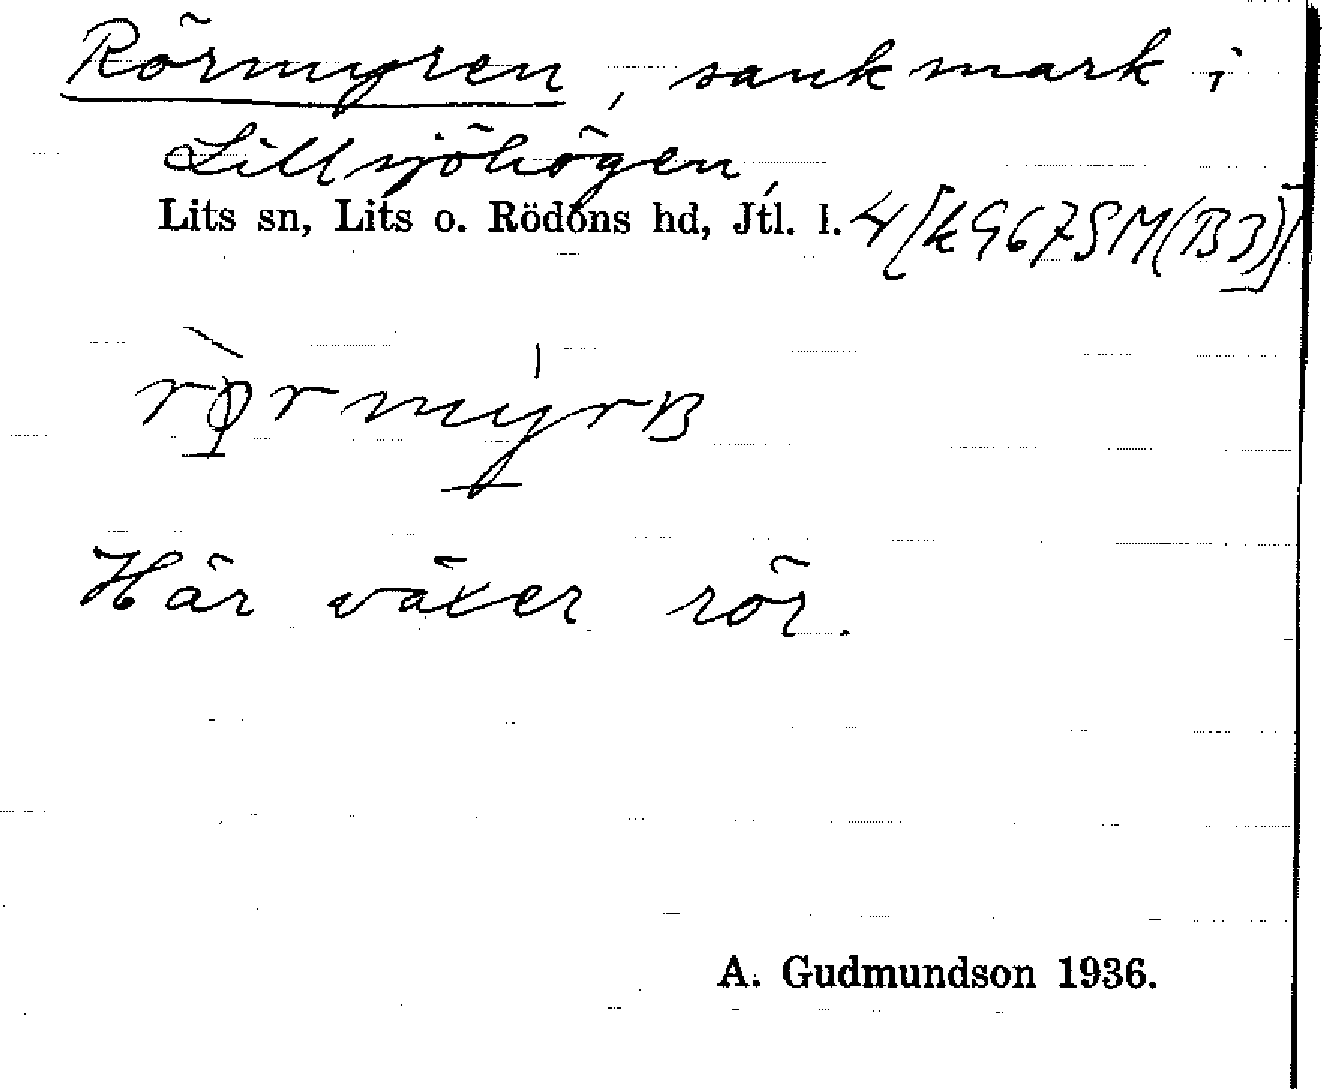 Rörmyren, sankmark i
Lillsjöhögen,
Lits sn, Lits o. Rödöns hd, Jtl. l. 4 [k967SM(B3)]
Här växer rör.
A. Gudmundson 1936.